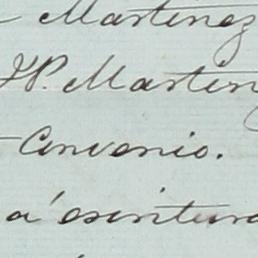 Martinez
P. Martin
Convenio.
á escritura